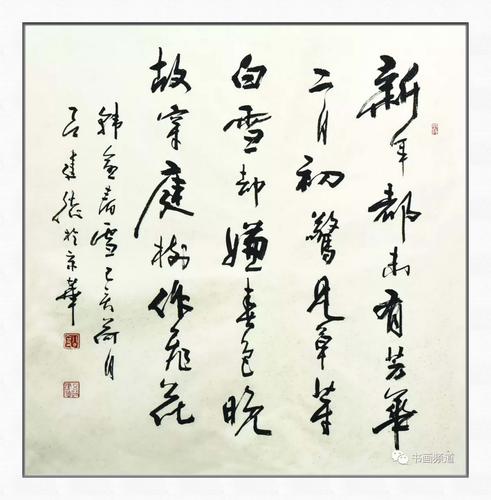 新年都未有芳華
二月初驚見草芽
白雪却嫌春色晚
故穿庭樹作飛花
韓愈春雪己亥荷月
吕建德於京華
书画频道